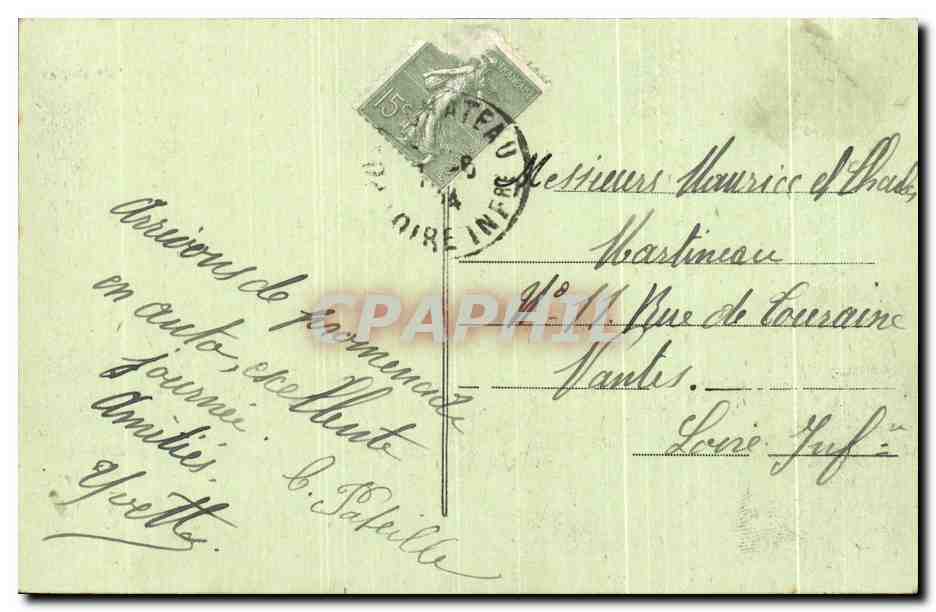 15c
ATEAU
-6
14
LOIRE INFRE
Arrivons de promenade
en auto, excellente
journée
Amitiés.
Yvette.
Messieurs Maurice et Charles
Martineau
No 11. Rue de Touraine
Nantes.
Loire Infre
CPAPHIL